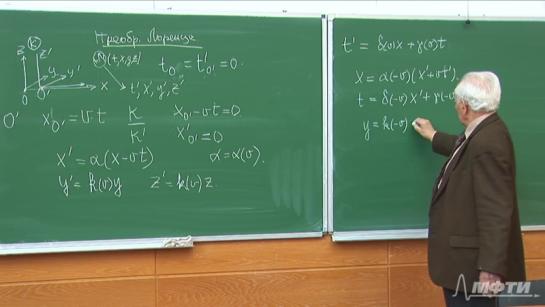 Преобр. Лоренца
K
z z'
y y'
A(t,x,y,z)
t', x', y', z'
x
0 0'
t₀ = t'₀' = 0.
0' x'₀' = vt K/K' x₀' - vt = 0.
x'₀' = 0
x' = α(x-vt) α = α(v).
y' = k(v)y z' = k(v)z.
t' = δ(v)x + γ(v)t
x = α(-v)(x' + vt').
t = δ(-v)x' + γ(-v)
y = k(-v)
МФТИ